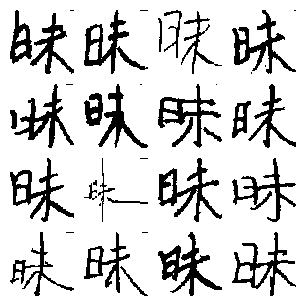 昧昧昧昧
昧昧昧昧
昧昧昧昧
昧昧昧昧